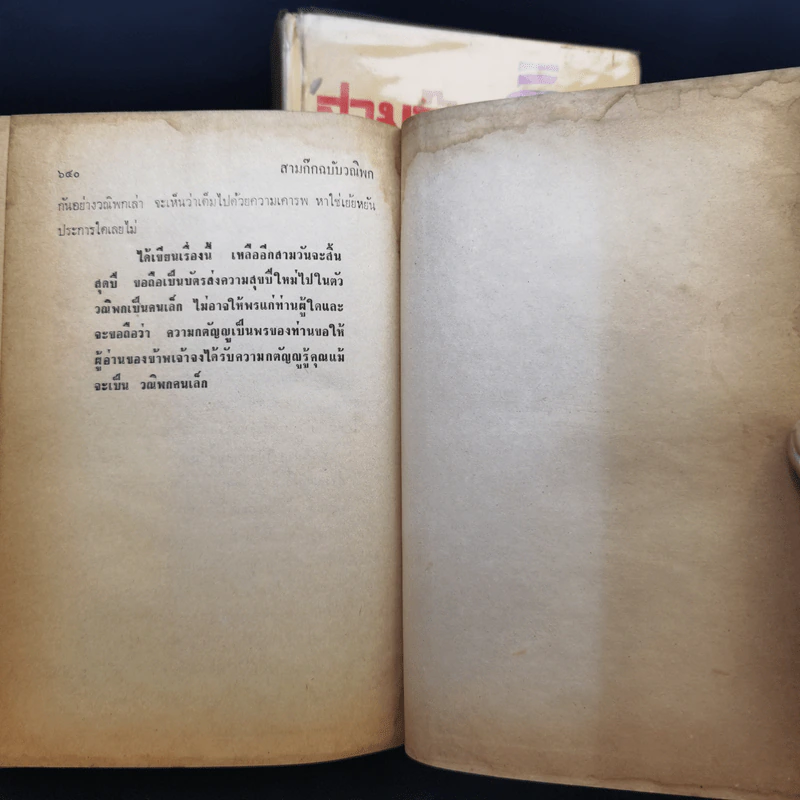 สามก๊ก
๖๔๐ สามก๊กฉบับวณิพก
กันอย่างวณิพกเล่า จะเห็นว่าเต็มไปด้วยความเคารพ หาใช่เย้ยหยัน
ประการใดเลยไม่
ได้เขียนเรื่องนี้ เหลืออีกสามวันจะสิ้น
สุดปี ขอถือเป็นบัตรส่งความสุขปีใหม่ไปในตัว
วณิพกเป็นคนเล็ก ไม่อาจให้พรแก่ท่านผู้ใดและ
จะขอถือว่า ความกตัญญูเป็นพรของท่านขอให้
ผู้อ่านของข้าพเจ้าจงได้รับความกตัญญูรู้คุณแม้
จะเป็น วณิพกคนเล็ก